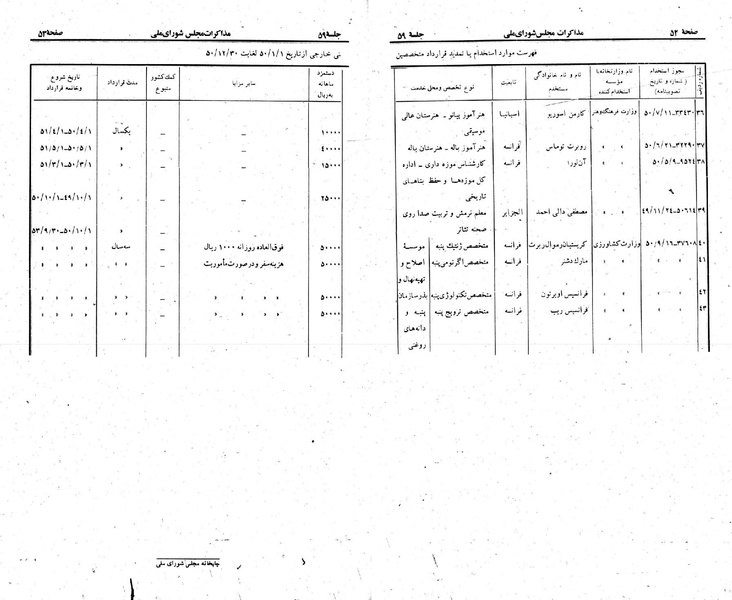 صفحهٔ ۵۲ مذاکرات مجلس شورای‌ملی جلسهٔ ۵۹
فهرست موارد استخدام یا تمدید قرارداد متخصصین
شماره ردیف
مجوز استخدام (شماره و تاریخ تصویبنامه)
نام وزارتخانه یا مؤسسه استخدام کننده
نام و نام خانوادگی مستخدم
تابعیت
نوع تخصص و محل خدمت
۳۶ ۳۳۴۳۰–۵۰/۷/۱۱ وزارت فرهنگ‌وهنر کارمن اسوریو اسپانیا هنرآموز پیانو - هنرستان عالی
موسیقی
۳۷ ۳۲۲۹۰–۵۰/۶/۲۱ » » روبرت توماس فرانسه هنرآموز باله - هنرستان باله
۳۸ ۹۵۲۴–۵۰/۵/۹ » » آن‌اورا فرانسه کارشناس موزه داری - اداره
کل موزه‌ها و حفظ بناهای
تاریخی
۳۹ ۵۰۶۱۴–۴۹/۱۱/۲۴ » » مصطفی دالی احمد الجزایر معلم نرمش و تربیت صدا روی
صحنه تئاتر
۴۰ ۳۷۶۰۸–۵۰/۹/۱۶ وزارت کشاورزی کریستیان رموال ربرت فرانسه متخصص ژنتیك پنبه موسسهٔ
۴۱ » » مارك دشنر فرانسه متخصص اگرنومی پنبه اصلاح و
تهیه‌نهال و
۴۲ » » فرانسیس اوبرتون فرانسه متخصص تکنولوژی پنبه بذرسازمان
۴۳ » » فرانسیس ریپ فرانسه متخصص ترویج پنبه پنبه و
دانه‌های
روغنی
جلسهٔ ۵۹ مذاکرات مجلس شورای ملی صفحهٔ ۵۳
نی خارجی از تاریخ ۵۰/۱/۱ لغایت ۵۰/۱۲/۳۰
دستمزد ماهانه به‌ریال
سایر مزایا
کمك کشور متبوع
مدت قرارداد
تاریخ شروع وخاتمه قرارداد
۱۰۰۰۰ – – یکسال ۵۰/۴/۱–۵۱/۴/۱
۴۰۰۰۰ – – » ۵۰/۵/۱–۵۱/۵/۱
۱۵۰۰۰ – – » ۵۰/۳/۱–۵۱/۳/۱
۲۵۰۰۰ – – » ۴۹/۱۰/۱–۵۰/۱۰/۱
۵۰/۱۰/۱–۵۳/۹/۳۰
۵۰۰۰۰ فوق‌العاده روزانه ۱۰۰۰ ریال – سه‌سال » »
۵۰۰۰۰ هزینه سفر و درصورت مأموریت – » » » »
۵۰۰۰۰ » » » » – » » » »
۵۰۰۰۰ » » » » – » » » »
چاپخانه مجلس شورای ملی